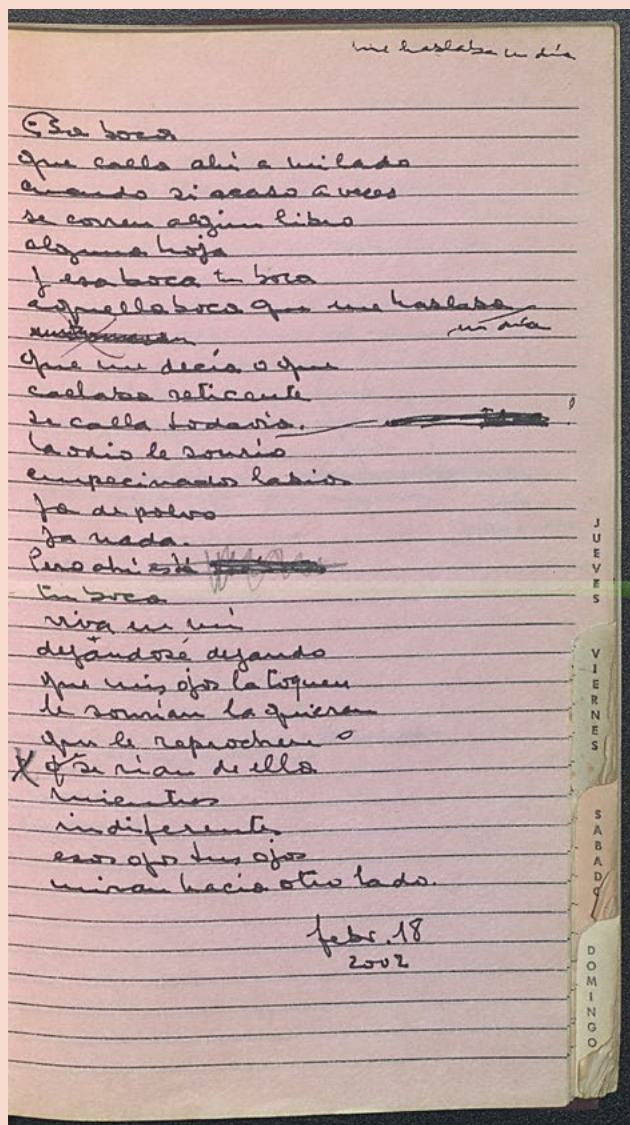 me hablaba un día
Esa boca
que calla ahí a mi lado
cuando si acaso a veces
se corren algún libro
alguna hoja
y esa boca tu boca
aquella boca que me hablaba
un día
que me decía o que
callaba reticente
se calla todavía.
La odio le sonrío
empecinados labios
ya de polvo
ya nada.
Pero ahí está
tu boca
viva en mí
dejándose dejando
que mis ojos la toquen
le sonrían la quieran
que le reprochen o
se rían de ella
mientras
indiferentes
esos ojos tus ojos
miran hacia otro lado.
febr. 18
2002
JUEVES
VIERNES
SABADO
DOMINGO